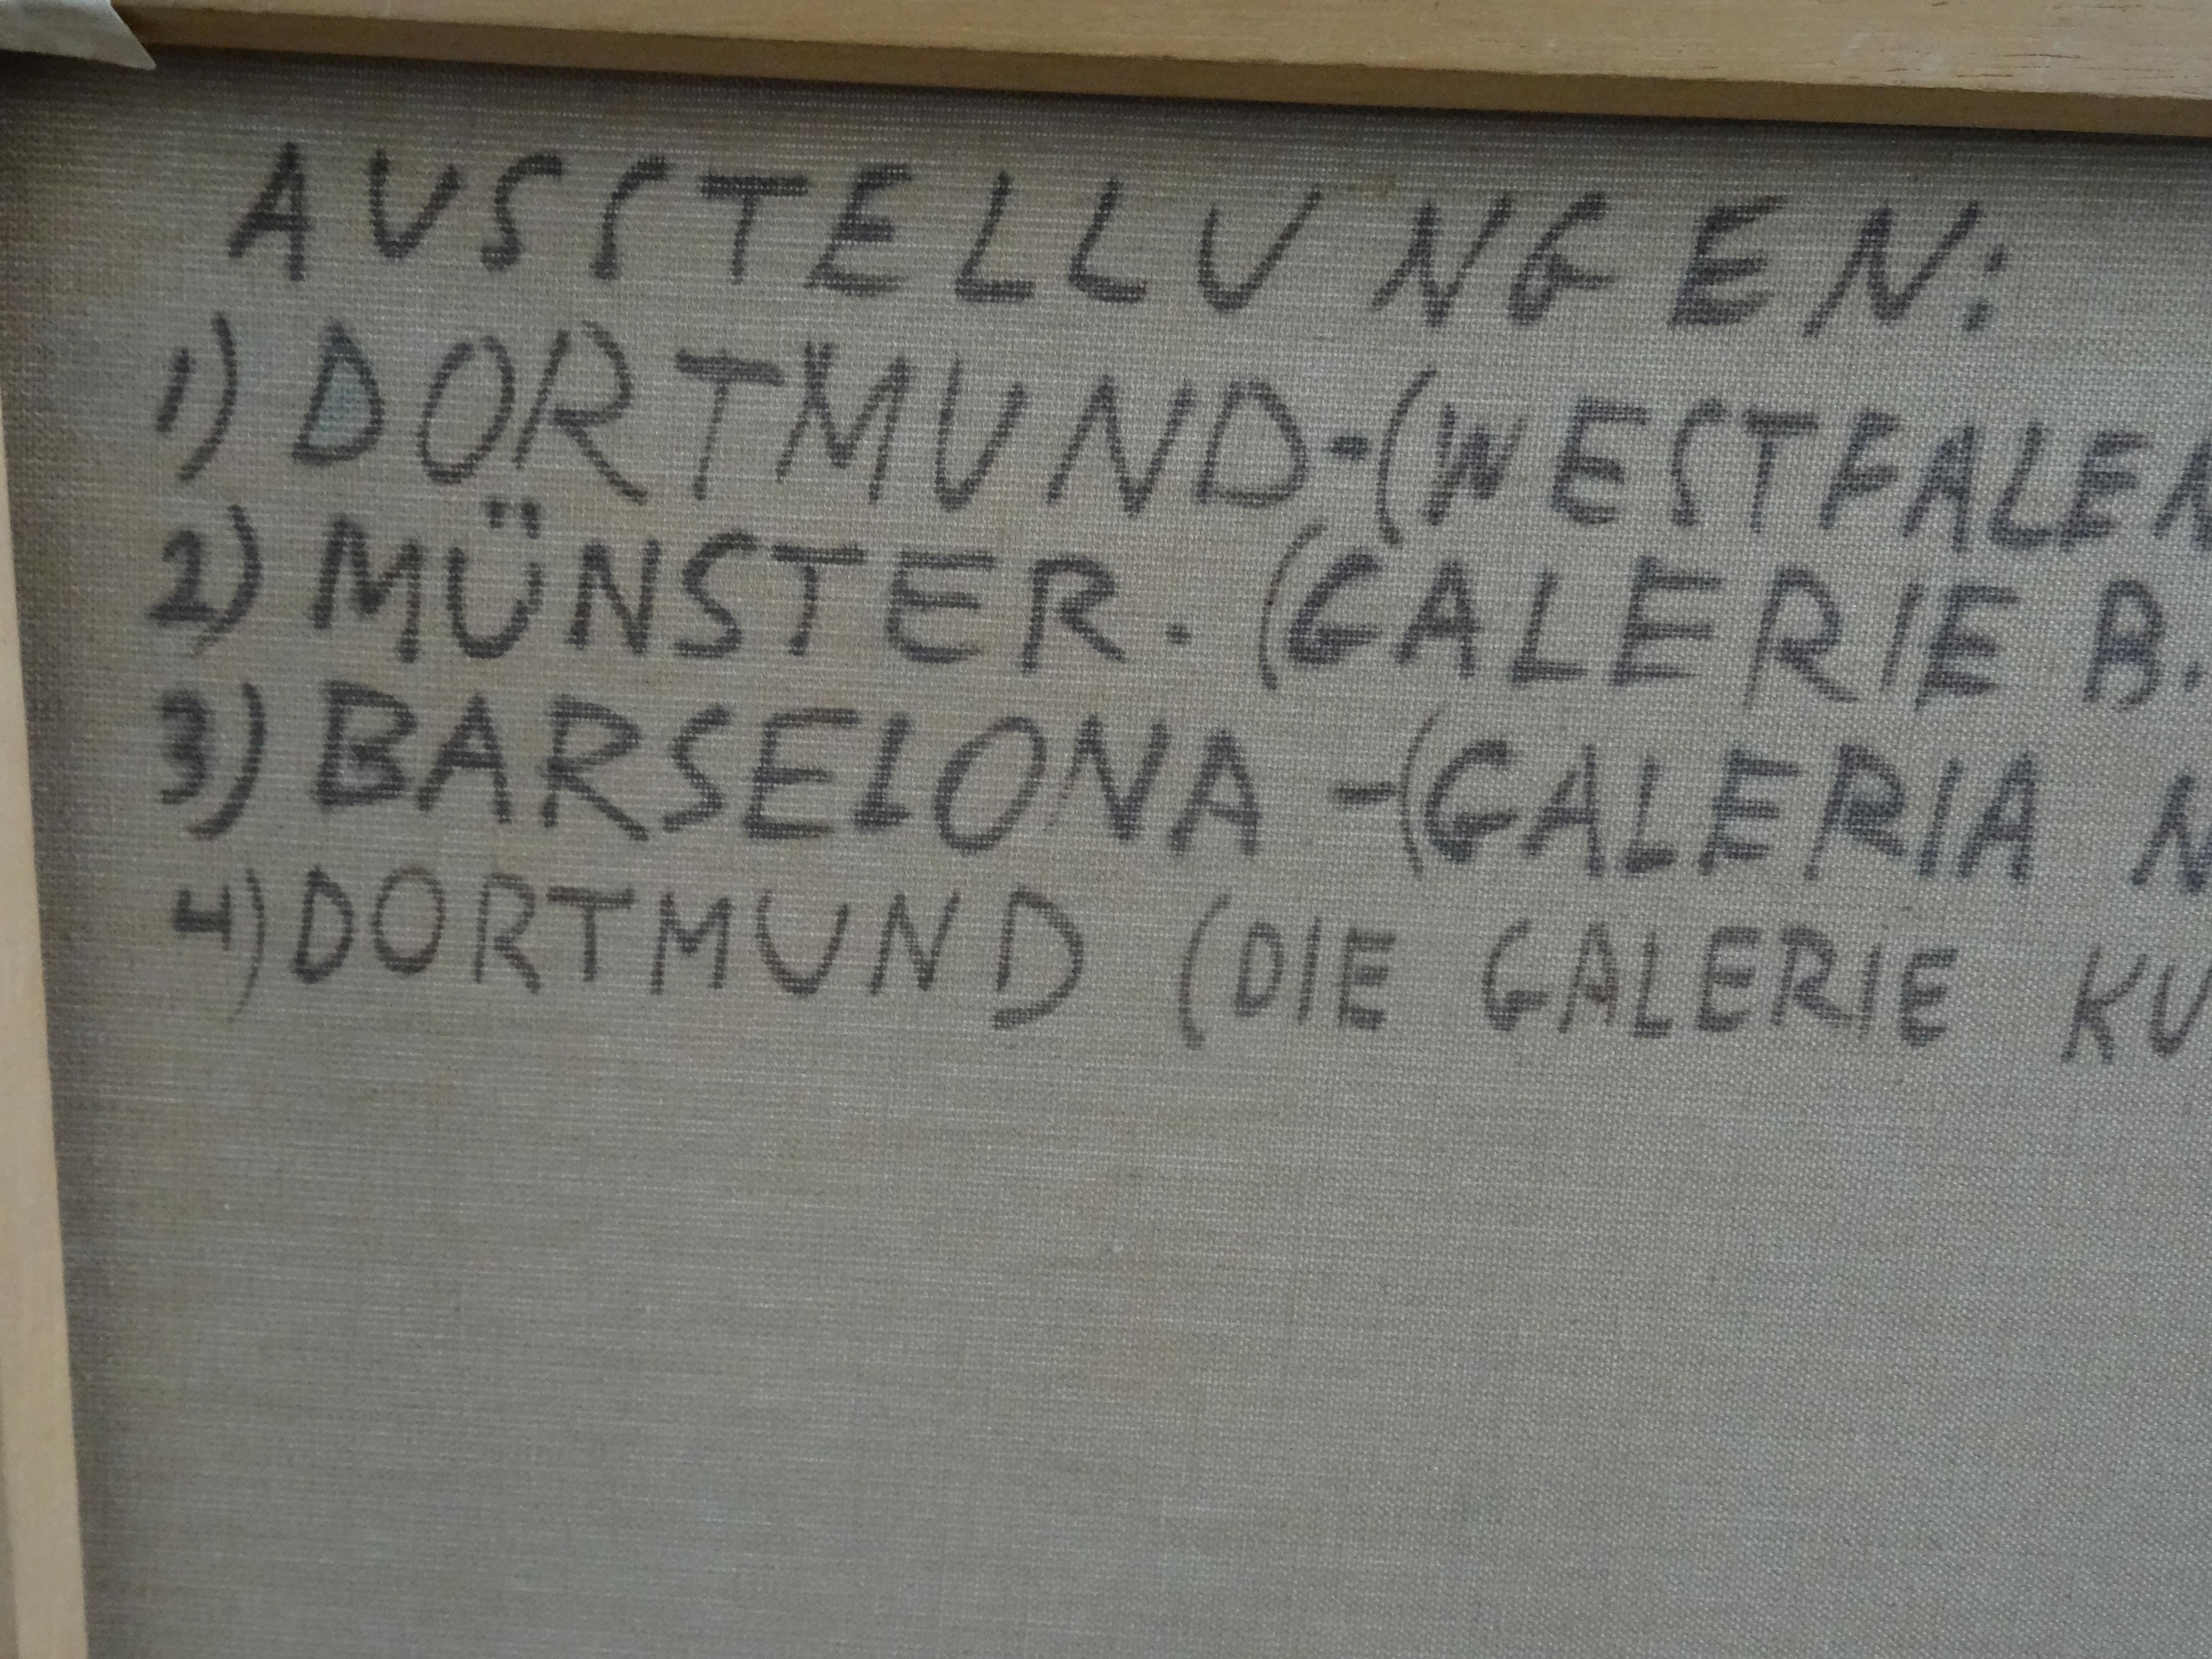 AUSSTELLUNGEN:
1) DORTMUND-(WESTFALEN
2) MÜNSTER. (GALERIE B.
3) BARSELONA -(GALERIA N
4) DORTMUND (DIE GALERIE KU